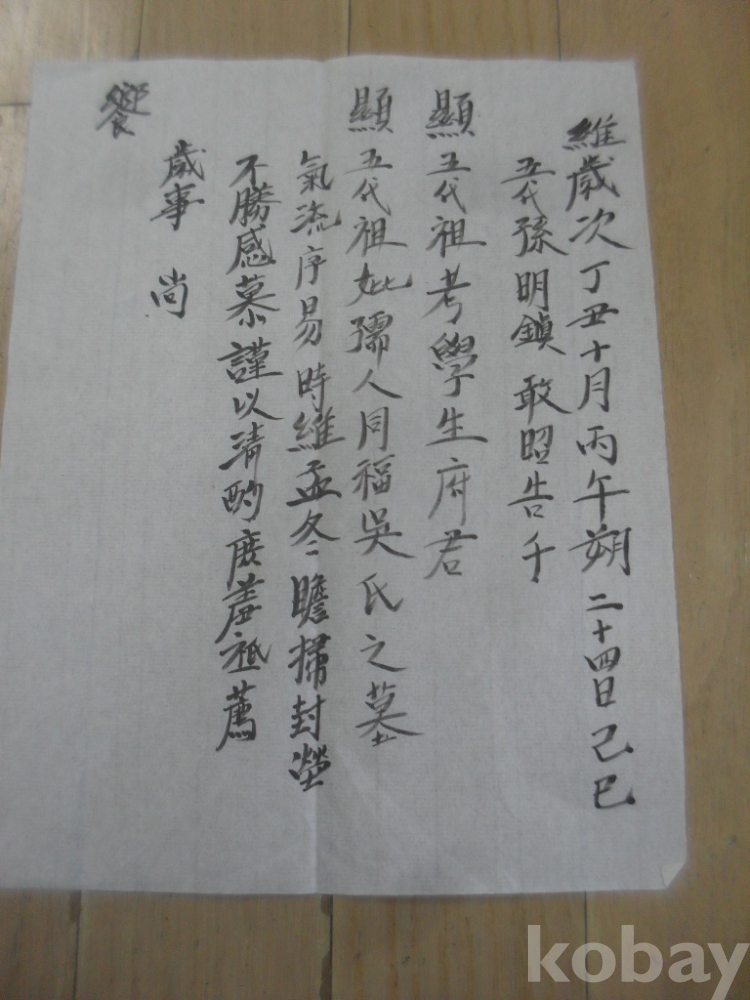 維歲次丁丑十月丙午朔二十四日己巳
五代孫明鎭敢昭告于
顯五代祖考學生府君
顯五代祖妣孺人同福吳氏之墓
氣流序易時維孟冬瞻掃封塋
不勝感慕謹以淸酌庶羞祗薦
歲事 尙
饗
kobay